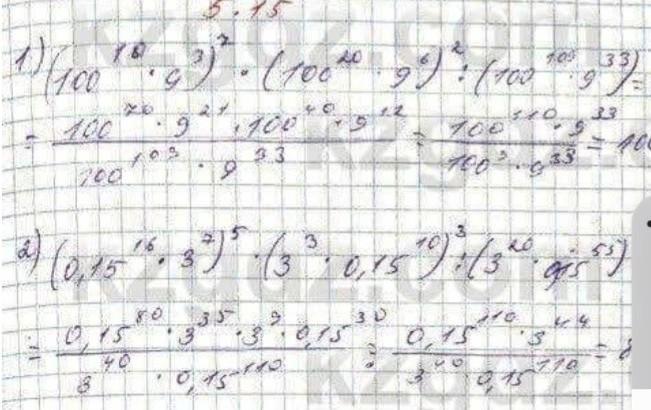 5.15
1) (100^10 · 9^3)^7 · (100^20 · 9^6)^2 : (100^109 · 9^33) =
= (100^70 · 9^21 · 100^40 · 9^12) / (100^109 · 9^33) = (100^110 · 9^33) / (100^9 · 9^33) = 100
2) (0,15^16 · 3^7)^5 · (3^3 · 0,15^10)^3 : (3^20 · 0,15^55)
= (0,15^80 · 3^35 · 3^9 · 0,15^30) / (3^40 · 0,15^110) = (0,15^110 · 3^44) / (3^40 · 0,15^110) = 8
kzgdz.com